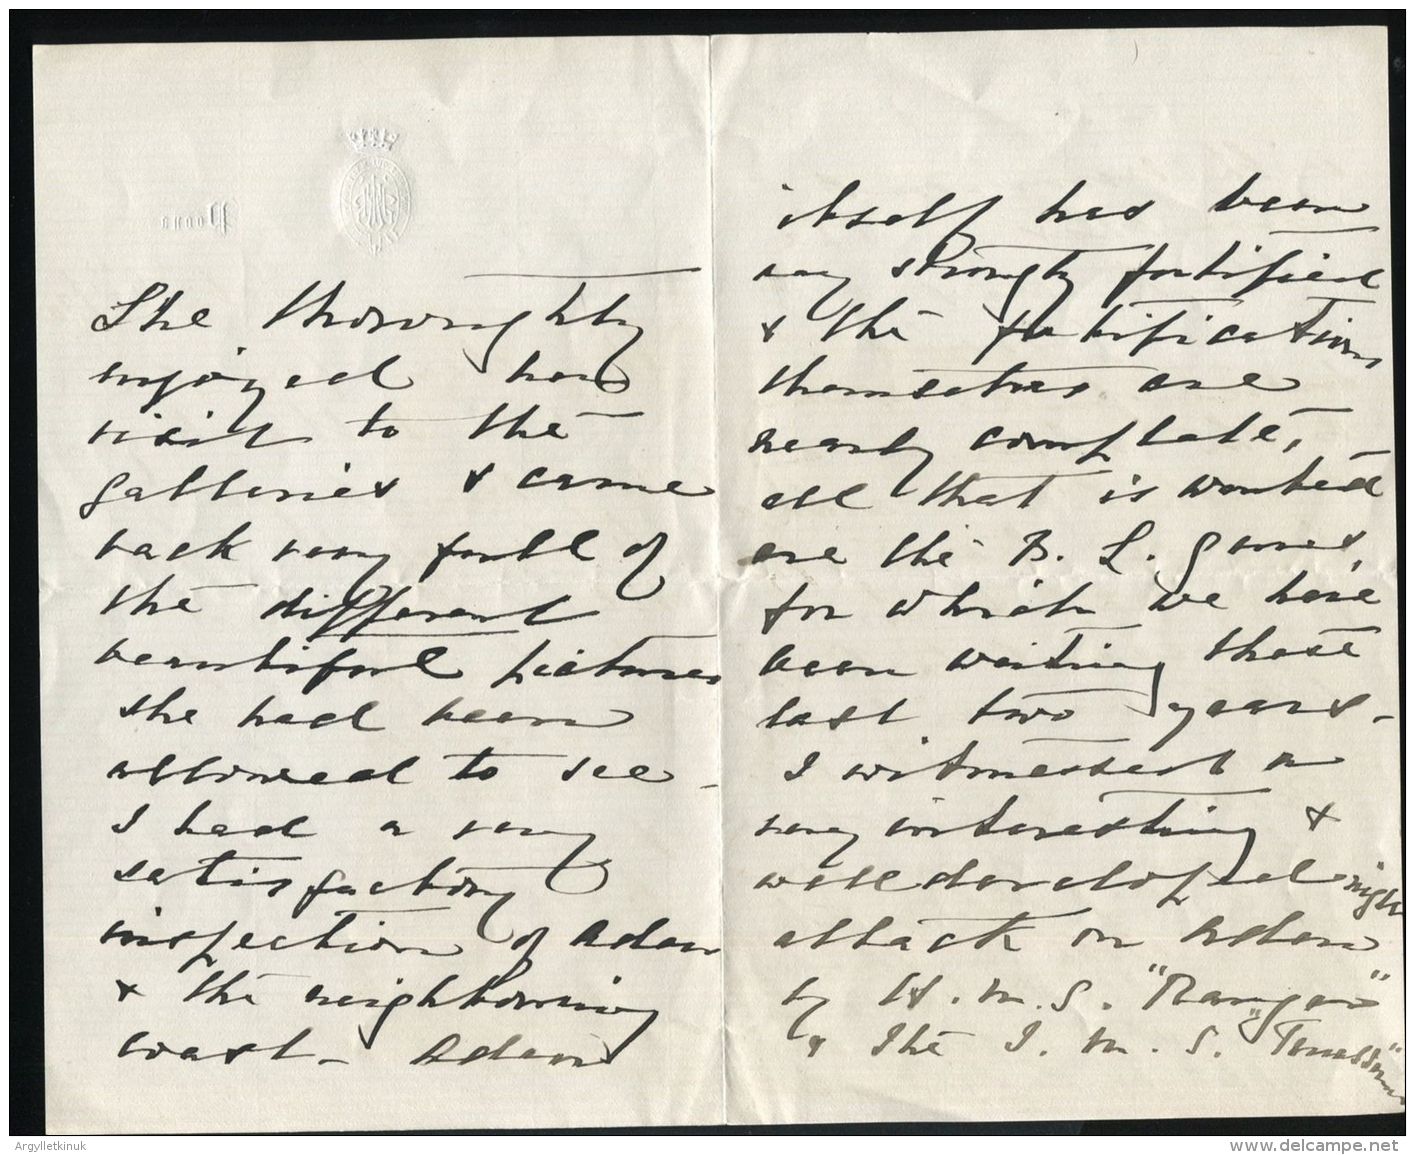 Poona
She thoroughly
enjoyed her
visit to the
galleries & came
back very full of
the different
beautiful pictures
she had been
allowed to see -
I had a very
satisfactory
inspection of Aden
& the neighbouring
coast - Aden
itself has been
very strongly fortified
& the fortifications
themselves are
nearly complete,
all that is wanted
are the B. L. guns,
for which we have
been waiting these
last two years -
I witnessed a
very interesting &
well developed night
attack on Aden
by H. M. S. "Ranger"
& the I. M. S. "Tenasserim"
Argylletkinuk
www.delcampe.net